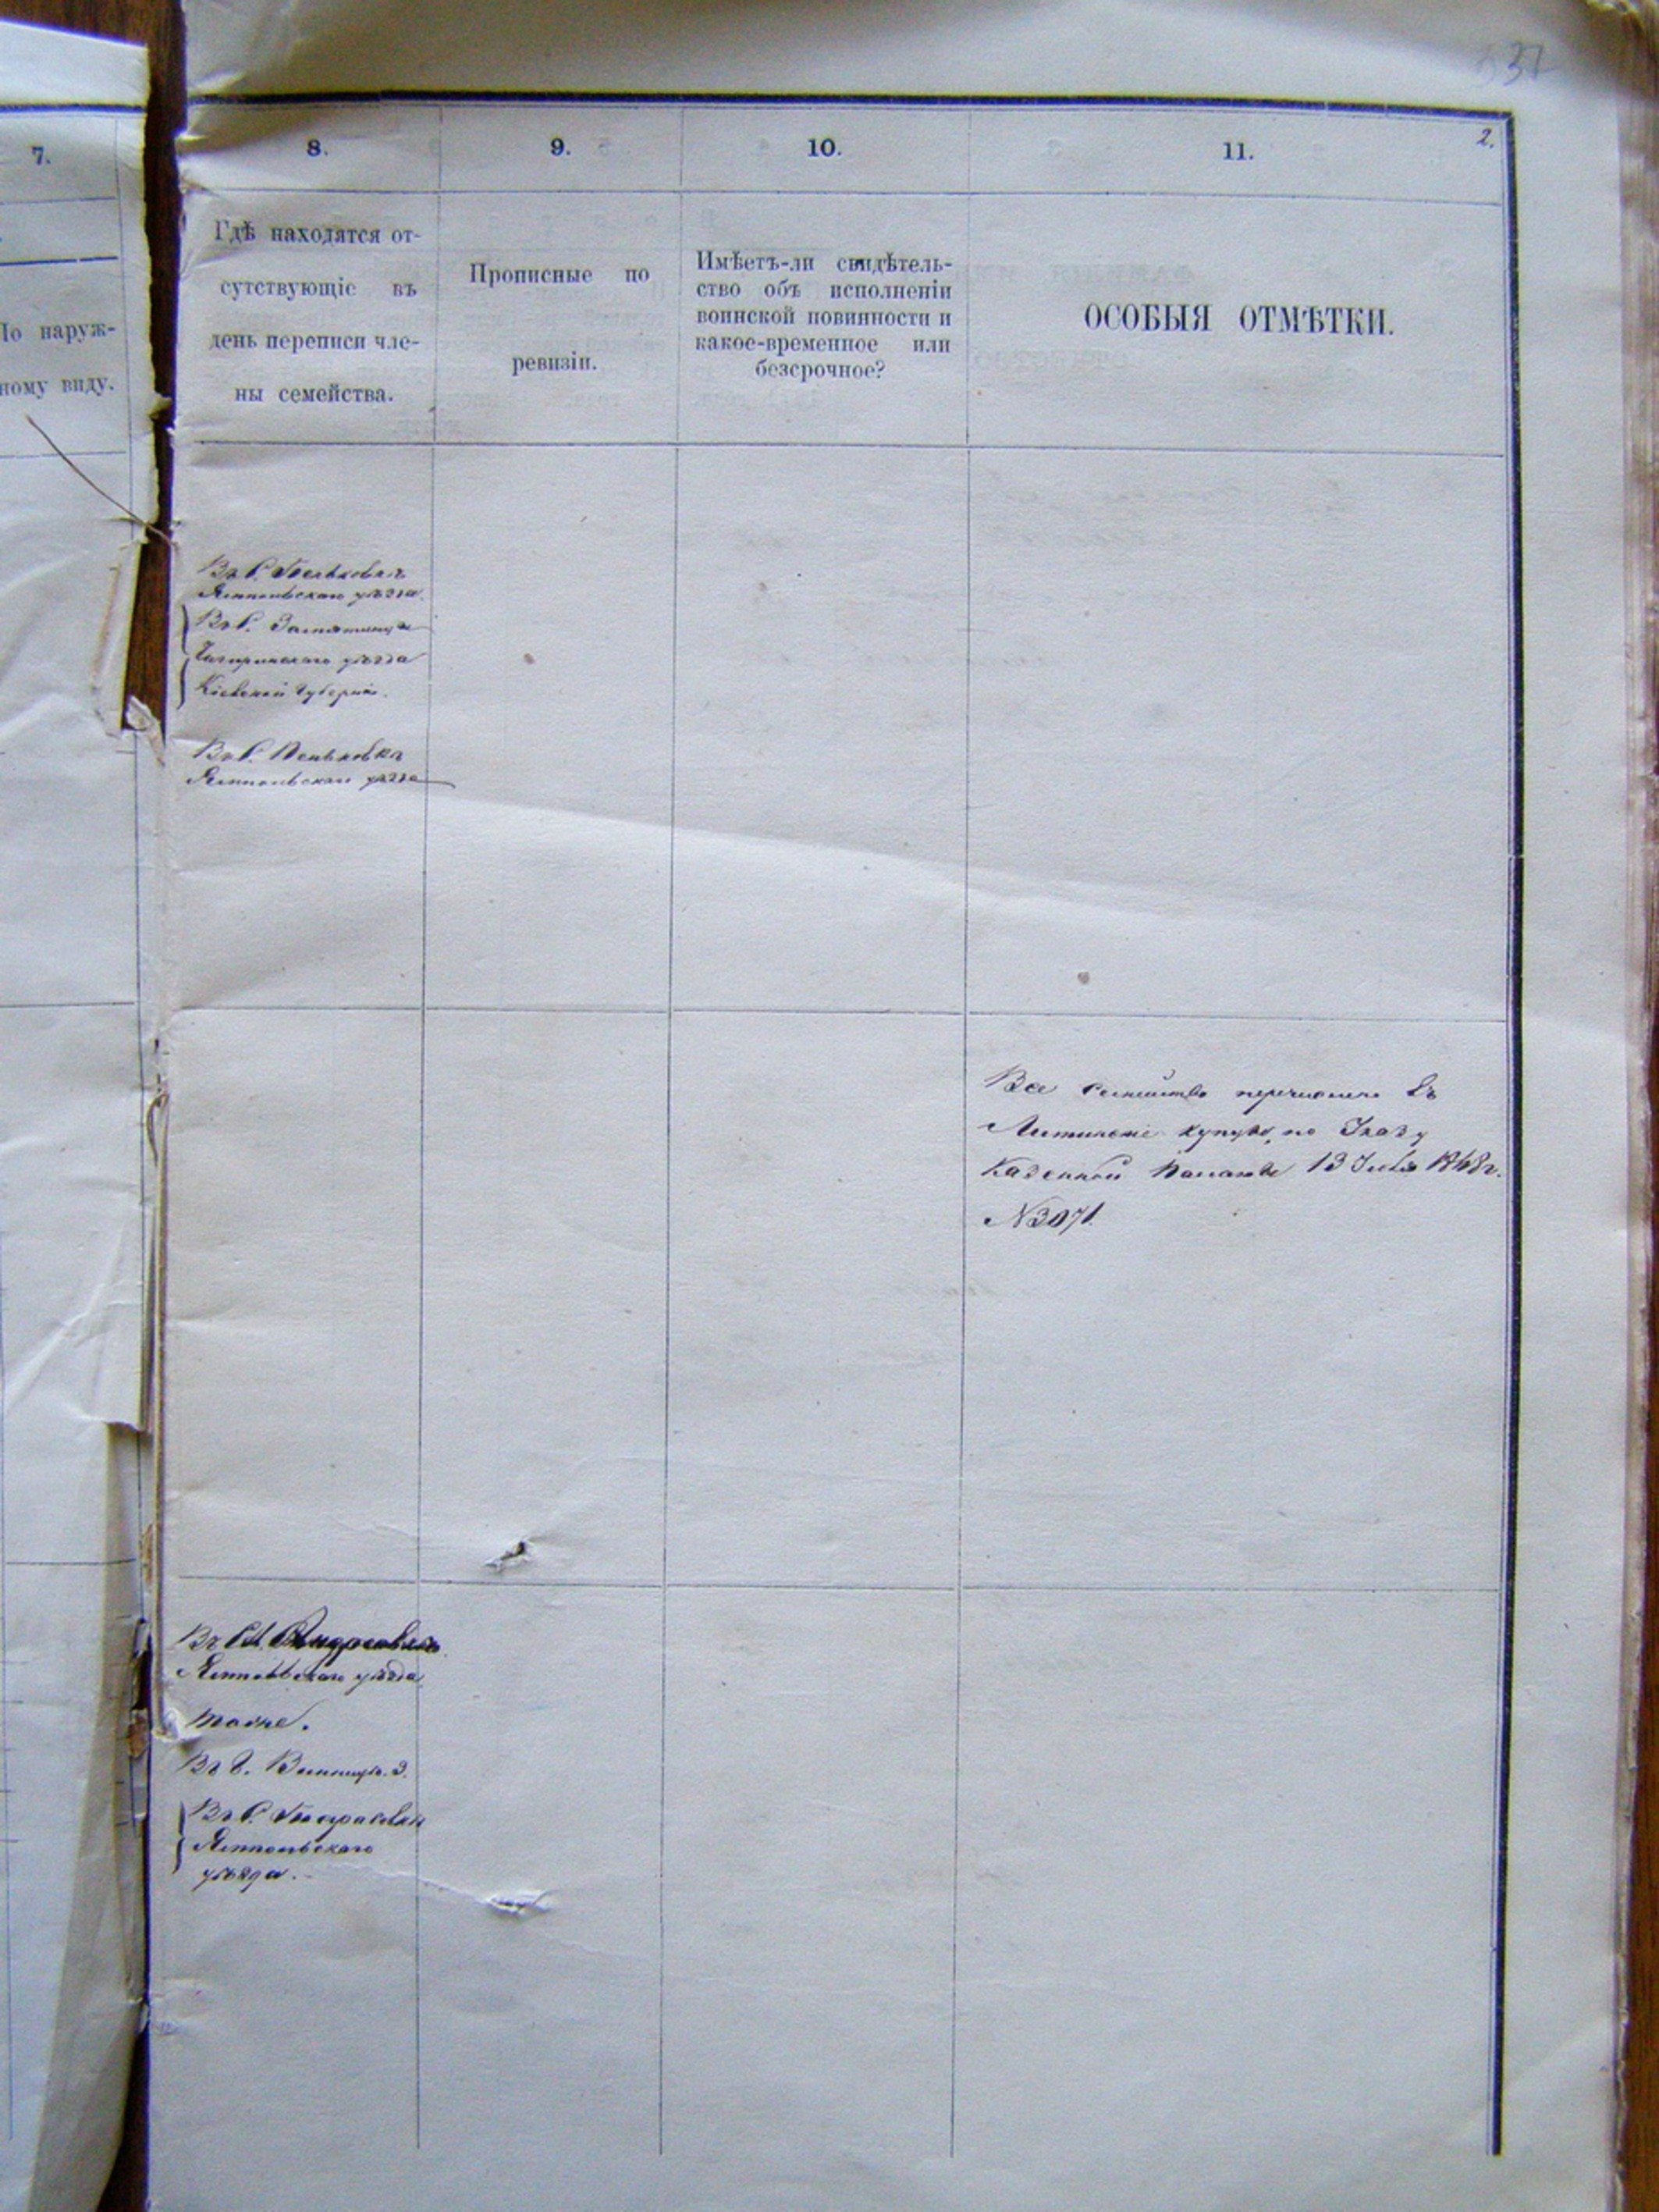 37
2.
7.
8.
9.
10.
11.
По наруж-
ному виду.
Гдѣ находятся от-
сутствующіе въ
день переписи чле-
ны семейства.
Прописные по
ревизіи.
Имѣетъ-ли свидѣтель-
ство объ исполненіи
воинской повинности и
какое-временное или
безсрочное?
ОСОБЫЯ ОТМѢТКИ.
Въ С.
Ямпольскаго уѣзда.
Въ С.
Чигиринскаго уѣзда
Кіевской Губерніи.
Въ С. Пеньковкѣ
Ямпольскаго уѣзда
Все семейство перечислено въ
Литинскіе купцы, по Указу
Казенной Палаты 13 г.
N3071.
Въ
Ямпольскаго уѣзда
тоже.
Въ г. Винницѣ.
Въ С.
Ямпольскаго
уѣзда.